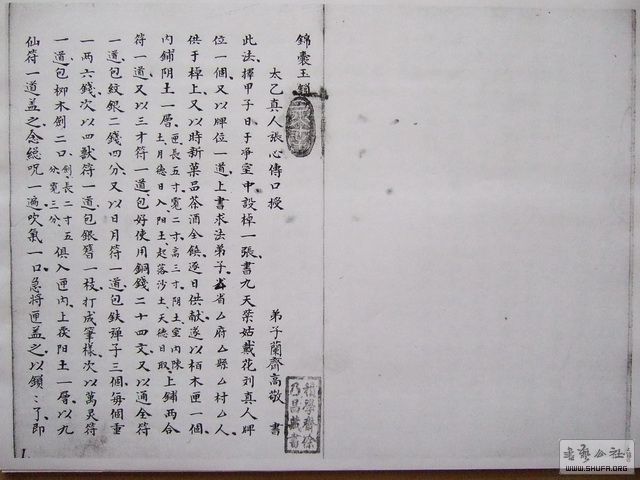 錦囊玉鎖
太乙真人張心傳口授
弟子蘭齋高敬 書
此法擇甲子日于净室中設棹一張書九天柴姑戴花刘真人牌
位一個又以牌位一道上書求法弟子厶省厶府厶縣厶村厶人
供于棹上又以時新菓品茶酒仝饒逐日供献遂以栢木匣一個
内鋪阴土一層匣長五寸寬二寸高三寸阴土室内陳土月德日入阳土起落沙土天德日取上鋪两合
符一道又以三才符一道包好使用銅錢二十四文又以通全符
一道包紋銀二錢四分又以日月符一道包鉄弹子三個每個重
一两六錢次以四獸符一道包銀簪一枝打成筆樣次以萬灵符
一道包柳木劍二口剑長二寸五分寬三分俱入匣内上
阳土一層以九
仙符一道盖之念総呪一遍吹氣一口急将匣盖之以鎖〻了即
積學齋徐乃昌藏書
1.
WWW.SHUFA.ORG